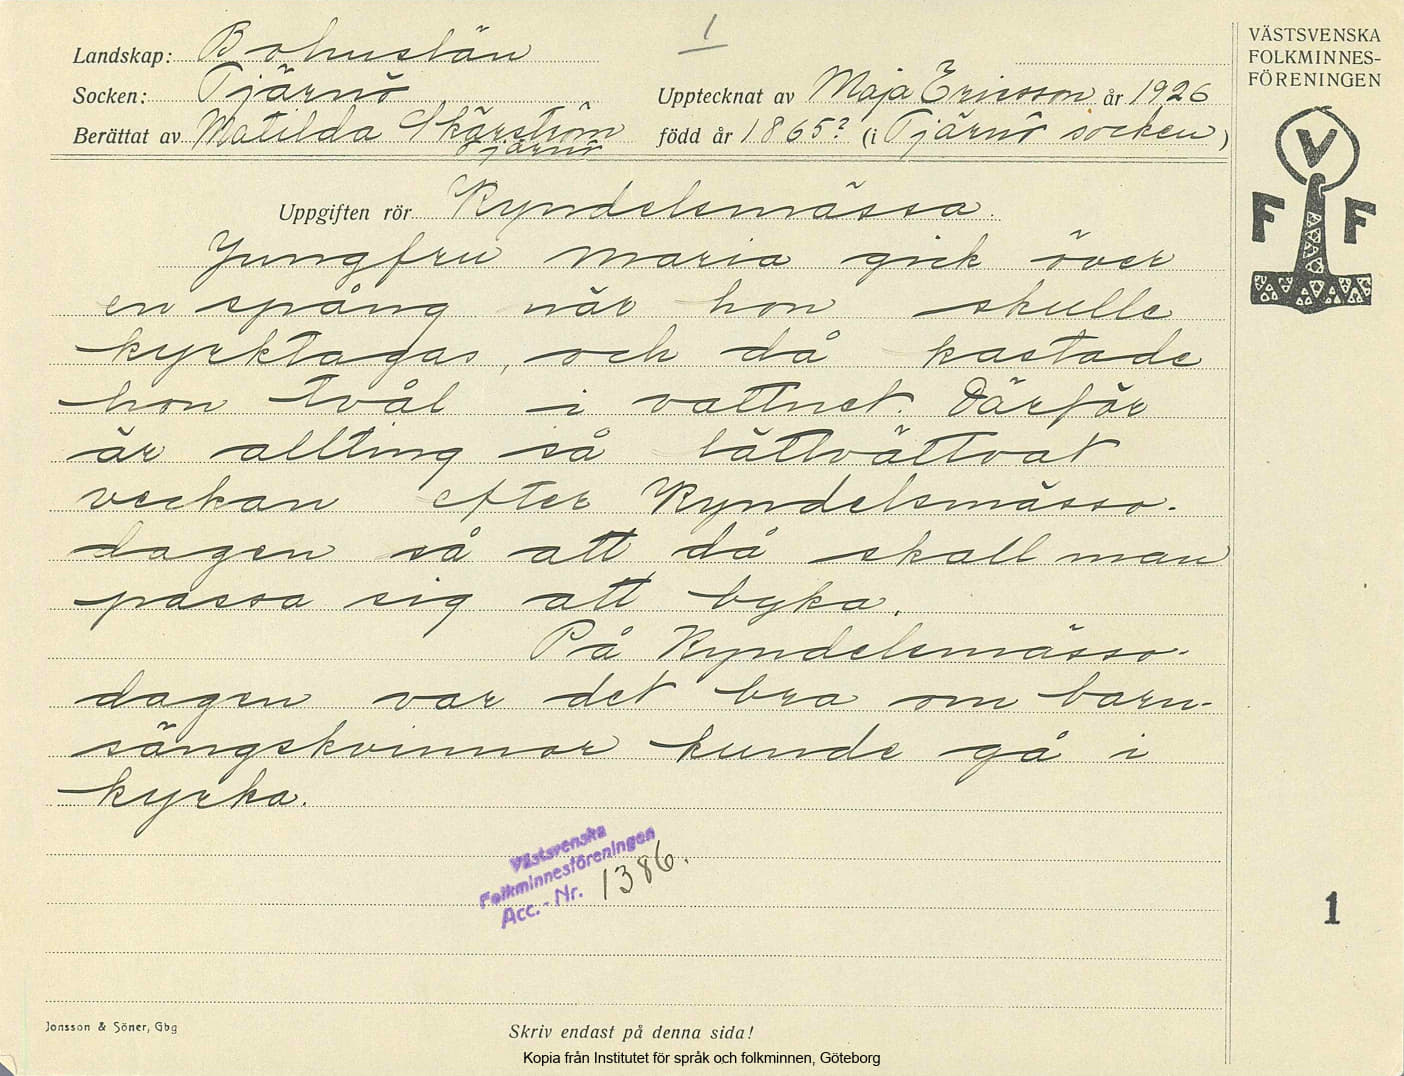 1
Landskap: Bohuslän
Socken: Tjärnö
Upptecknat av Maja Ericsson år 1926
Berättat av Matilda Skärström
Tjärnö
född år 1865? (i Tjärnö socken)
VÄSTSVENSKA
FOLKMINNES-
FÖRENINGEN
V
F F
Uppgiften rör Kyndelsmässa.
Jungfru Maria gick över
en spång när hon skulle
kyrktagas, och då kastade
hon tvål i vattnet. Därför
är allting så lättvättvat
veckan efter Kyndelsmässo-
dagen så att då skall man
passa sig att byka.
På Kyndelsmässo-
dagen var det bra om barn-
sängskvinnor kunde gå i
kyrka.
Västsvenska
Folkminnesföreningen
Acc. - Nr. 1386.
1
Jonsson & Söner, Gbg
Skriv endast på denna sida!
Kopia från Institutet för språk och folkminnen, Göteborg